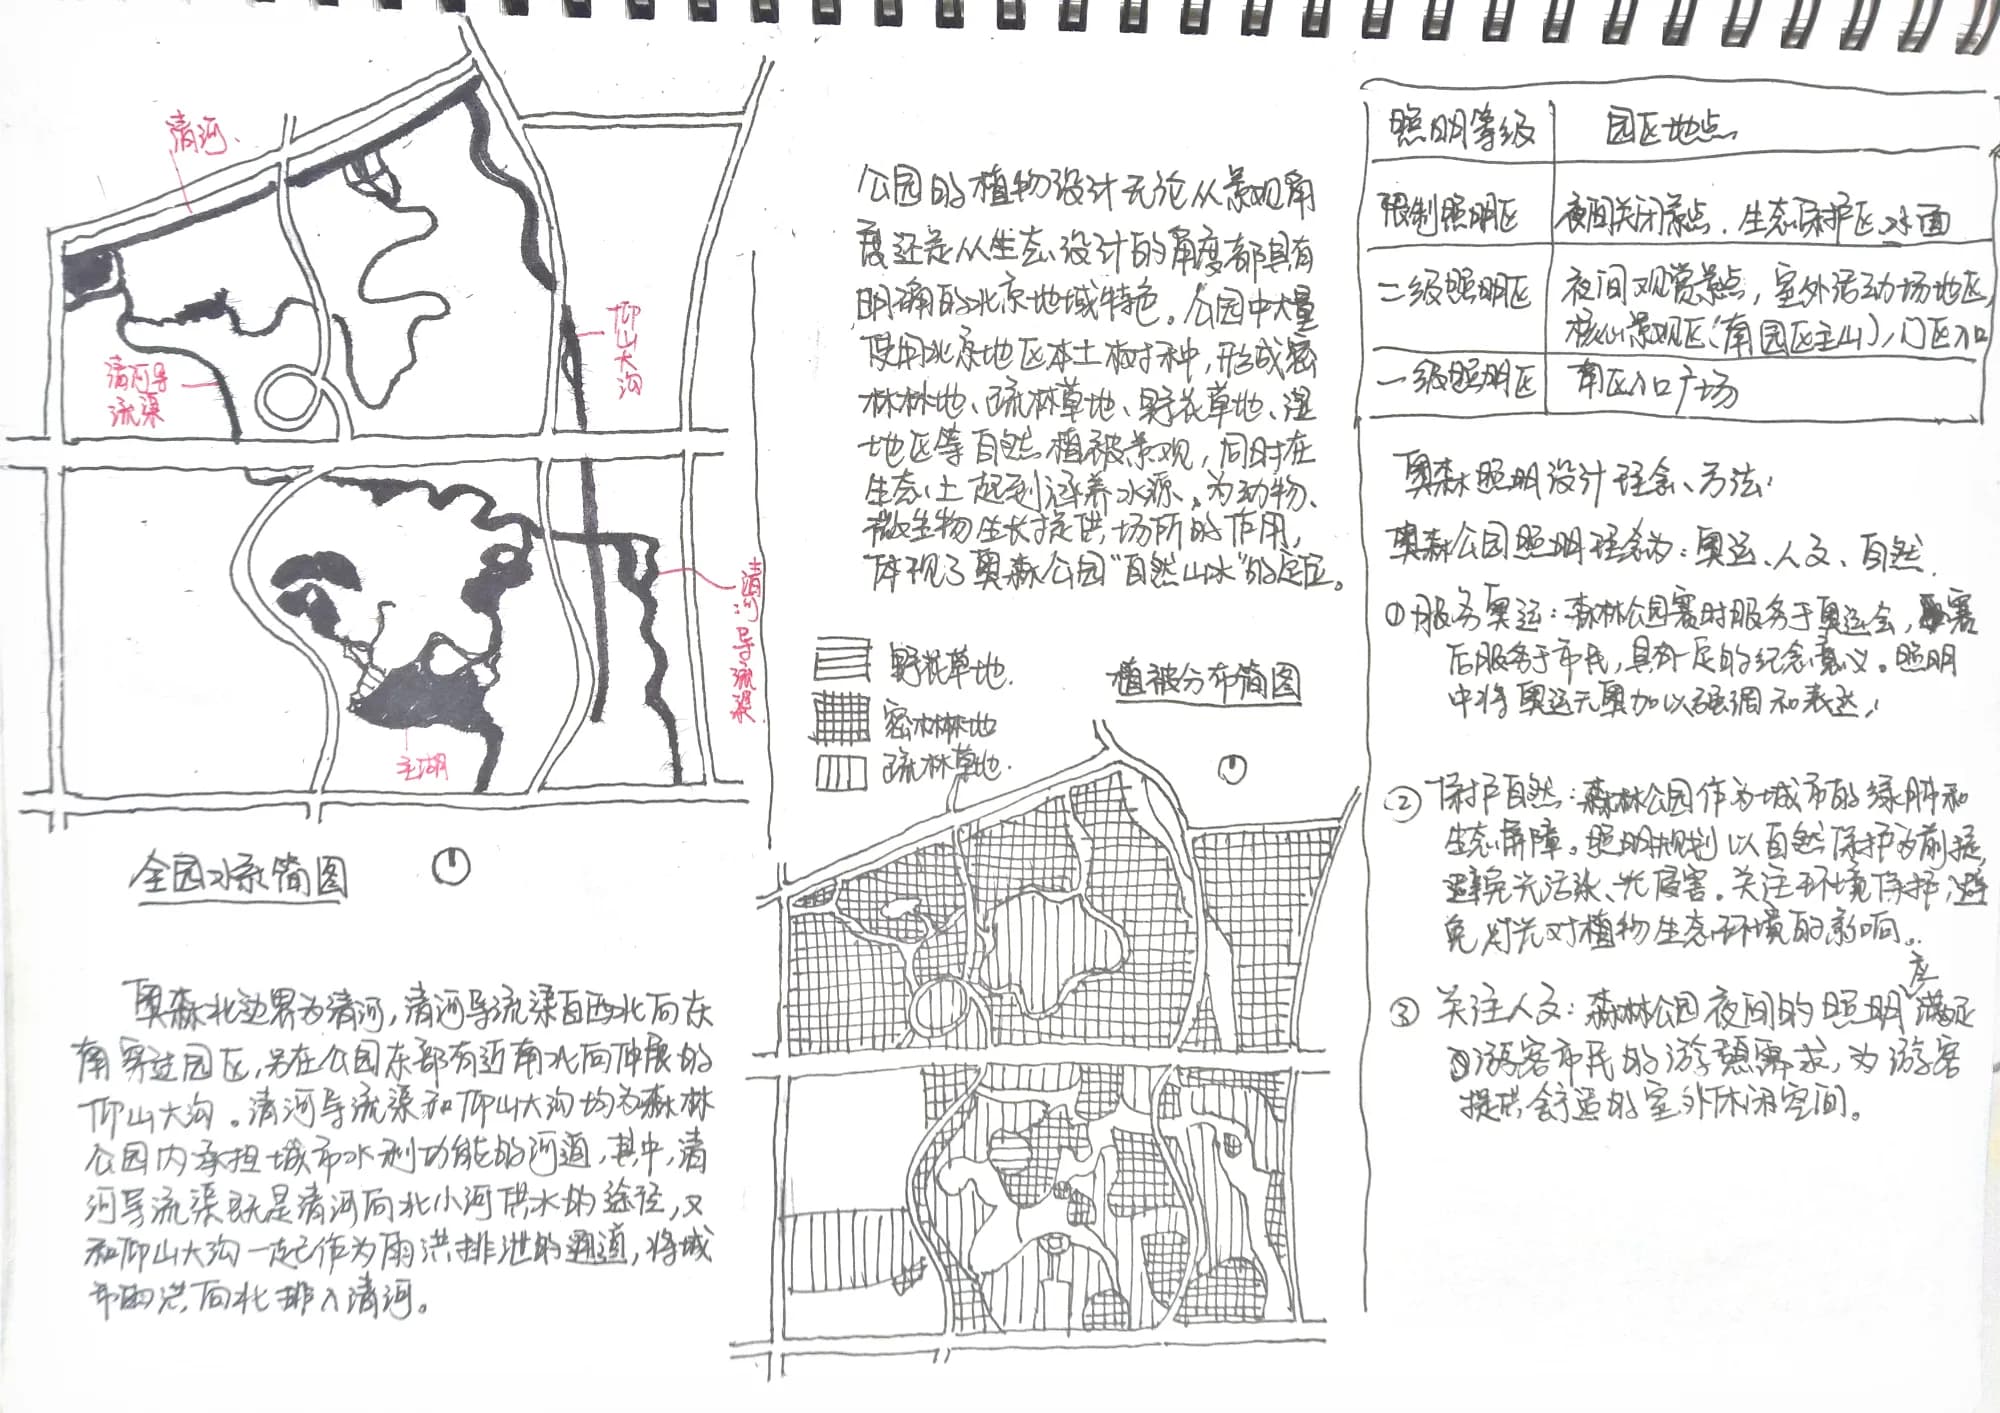 清河
仰山大沟
清河导
流渠
清河导流渠
主湖
全园水系简图
奥森北边界为清河，清河导流渠自西北向东
南穿过园区，另在公园东部有近南北向伸展的
仰山大沟。清河导流渠和仰山大沟均为森林
公园内承担城市水利功能的河道，其中，清
河导流渠既是清河向北小河供水的途径，又
和仰山大沟一起作为雨洪排泄的通道，将城
市雨洪向北排入清河。
公园的植物设计无论从景观角
度还是从生态设计的角度都具有
明确的北京地域特色。公园中大量
使用北京地区本土树种，形成密
林林地、疏林草地、野花草地、湿
地区等自然植被景观，同时在
生态上起到涵养水源、为动物、
微生物生长提供场所的作用，
体现了奥森公园“自然山水”的定位。
野花草地.
密林林地
疏林草地.
植被分布简图
照明等级 园区地点
限制照明区 夜间关闭景点．生态保护区、水面
二级照明区 夜间观赏景点，室外活动场地区，
核心景观区（南园区主山），门区入口
一级照明区 南区入口广场
奥森照明设计理念、方法：
奥森公园照明理念为：奥运、人文、自然.
① 服务奥运：森林公园赛时服务于奥运会，赛
后服务于市民，具有一定的纪念意义。照明
中将奥运元素加以强调和表达；
② 保护自然：森林公园作为城市的绿肺和
生态屏障。照明规划以自然保护为前提，
避免光污染、光侵害。关注环境保护，避
免灯光对植物生态环境的影响。
③ 关注人文：森林公园夜间的照明应满足
游客市民的游憩需求，为游客
提供舒适的室外休闲空间。